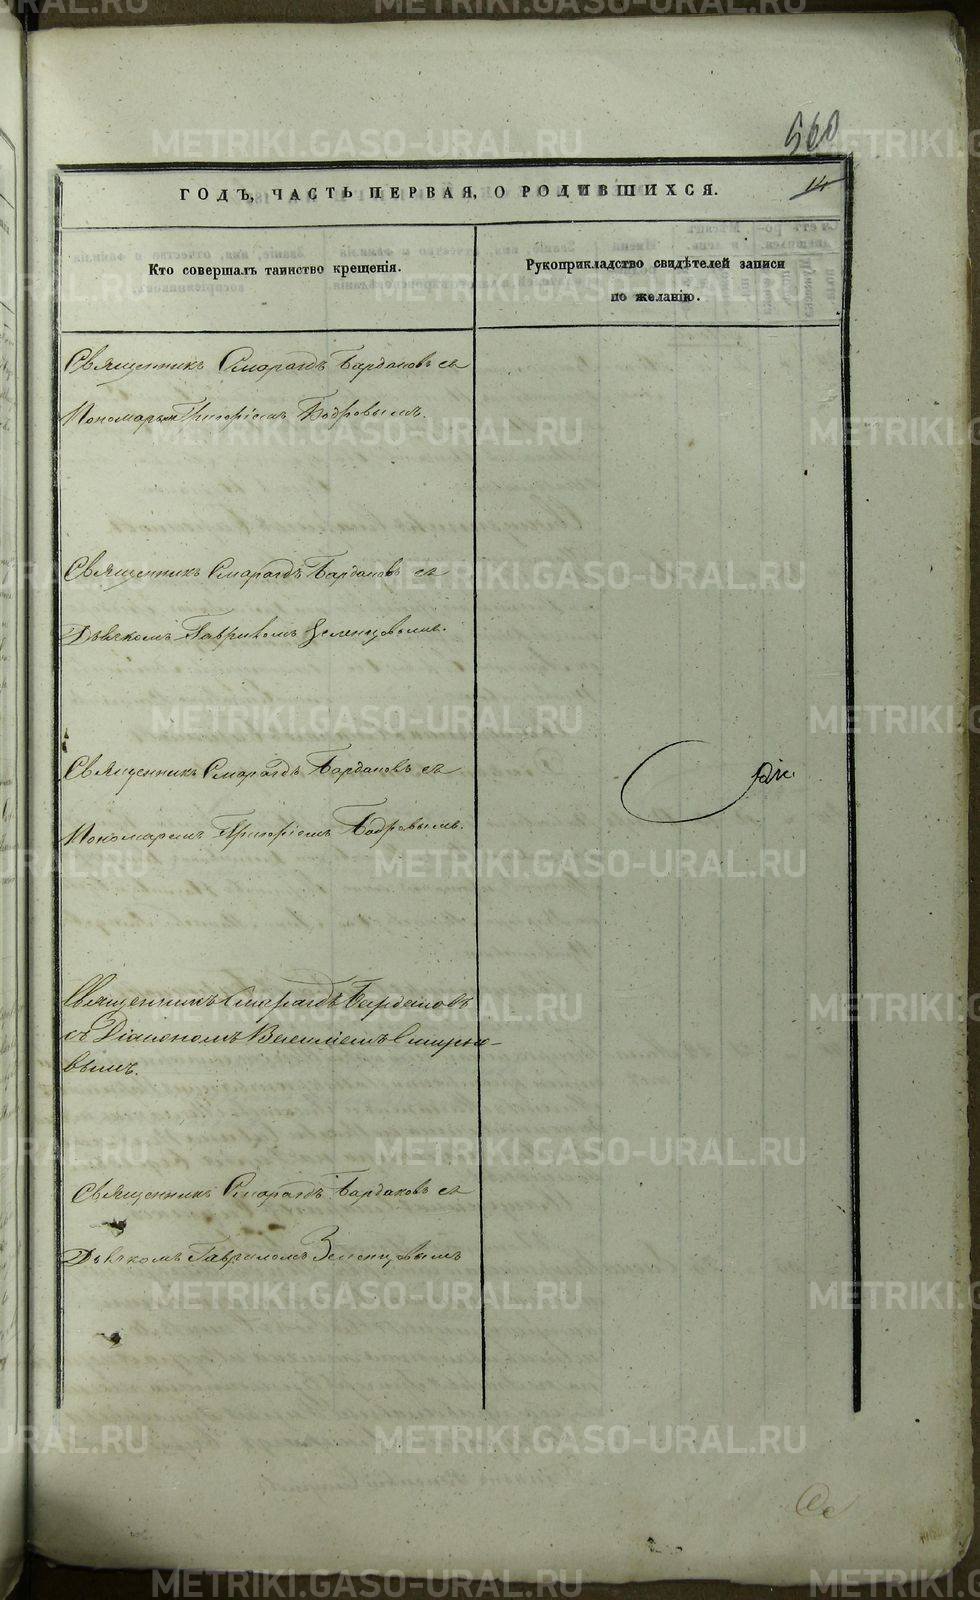 560
14
ГОДЪ, ЧАСТЬ ПЕРВАЯ, О РОДИВШИХСЯ.
Кто совершалъ таинство крещенія.
Рукоприкладство свидѣтелей записи
по желанію.
Священникъ Смарагдъ Бардаковъ съ
Пономаремъ Григоріемъ Бодровымъ.
Священникъ Смарагдъ Бардаковъ съ
Дьячкомъ Гавриломъ Зеленцовымъ.
Священникъ Смарагдъ Бардаковъ съ
Пономаремъ Григоріемъ Бодровымъ.
Священникъ Смарагдъ Бардаковъ
съ Діакономъ Василіемъ Смирно-
вымъ.
Священникъ Смарагдъ Бардаковъ съ
Дьячкомъ Гавриломъ Зеленцовымъ
METRIKI.GASO-URAL.RU